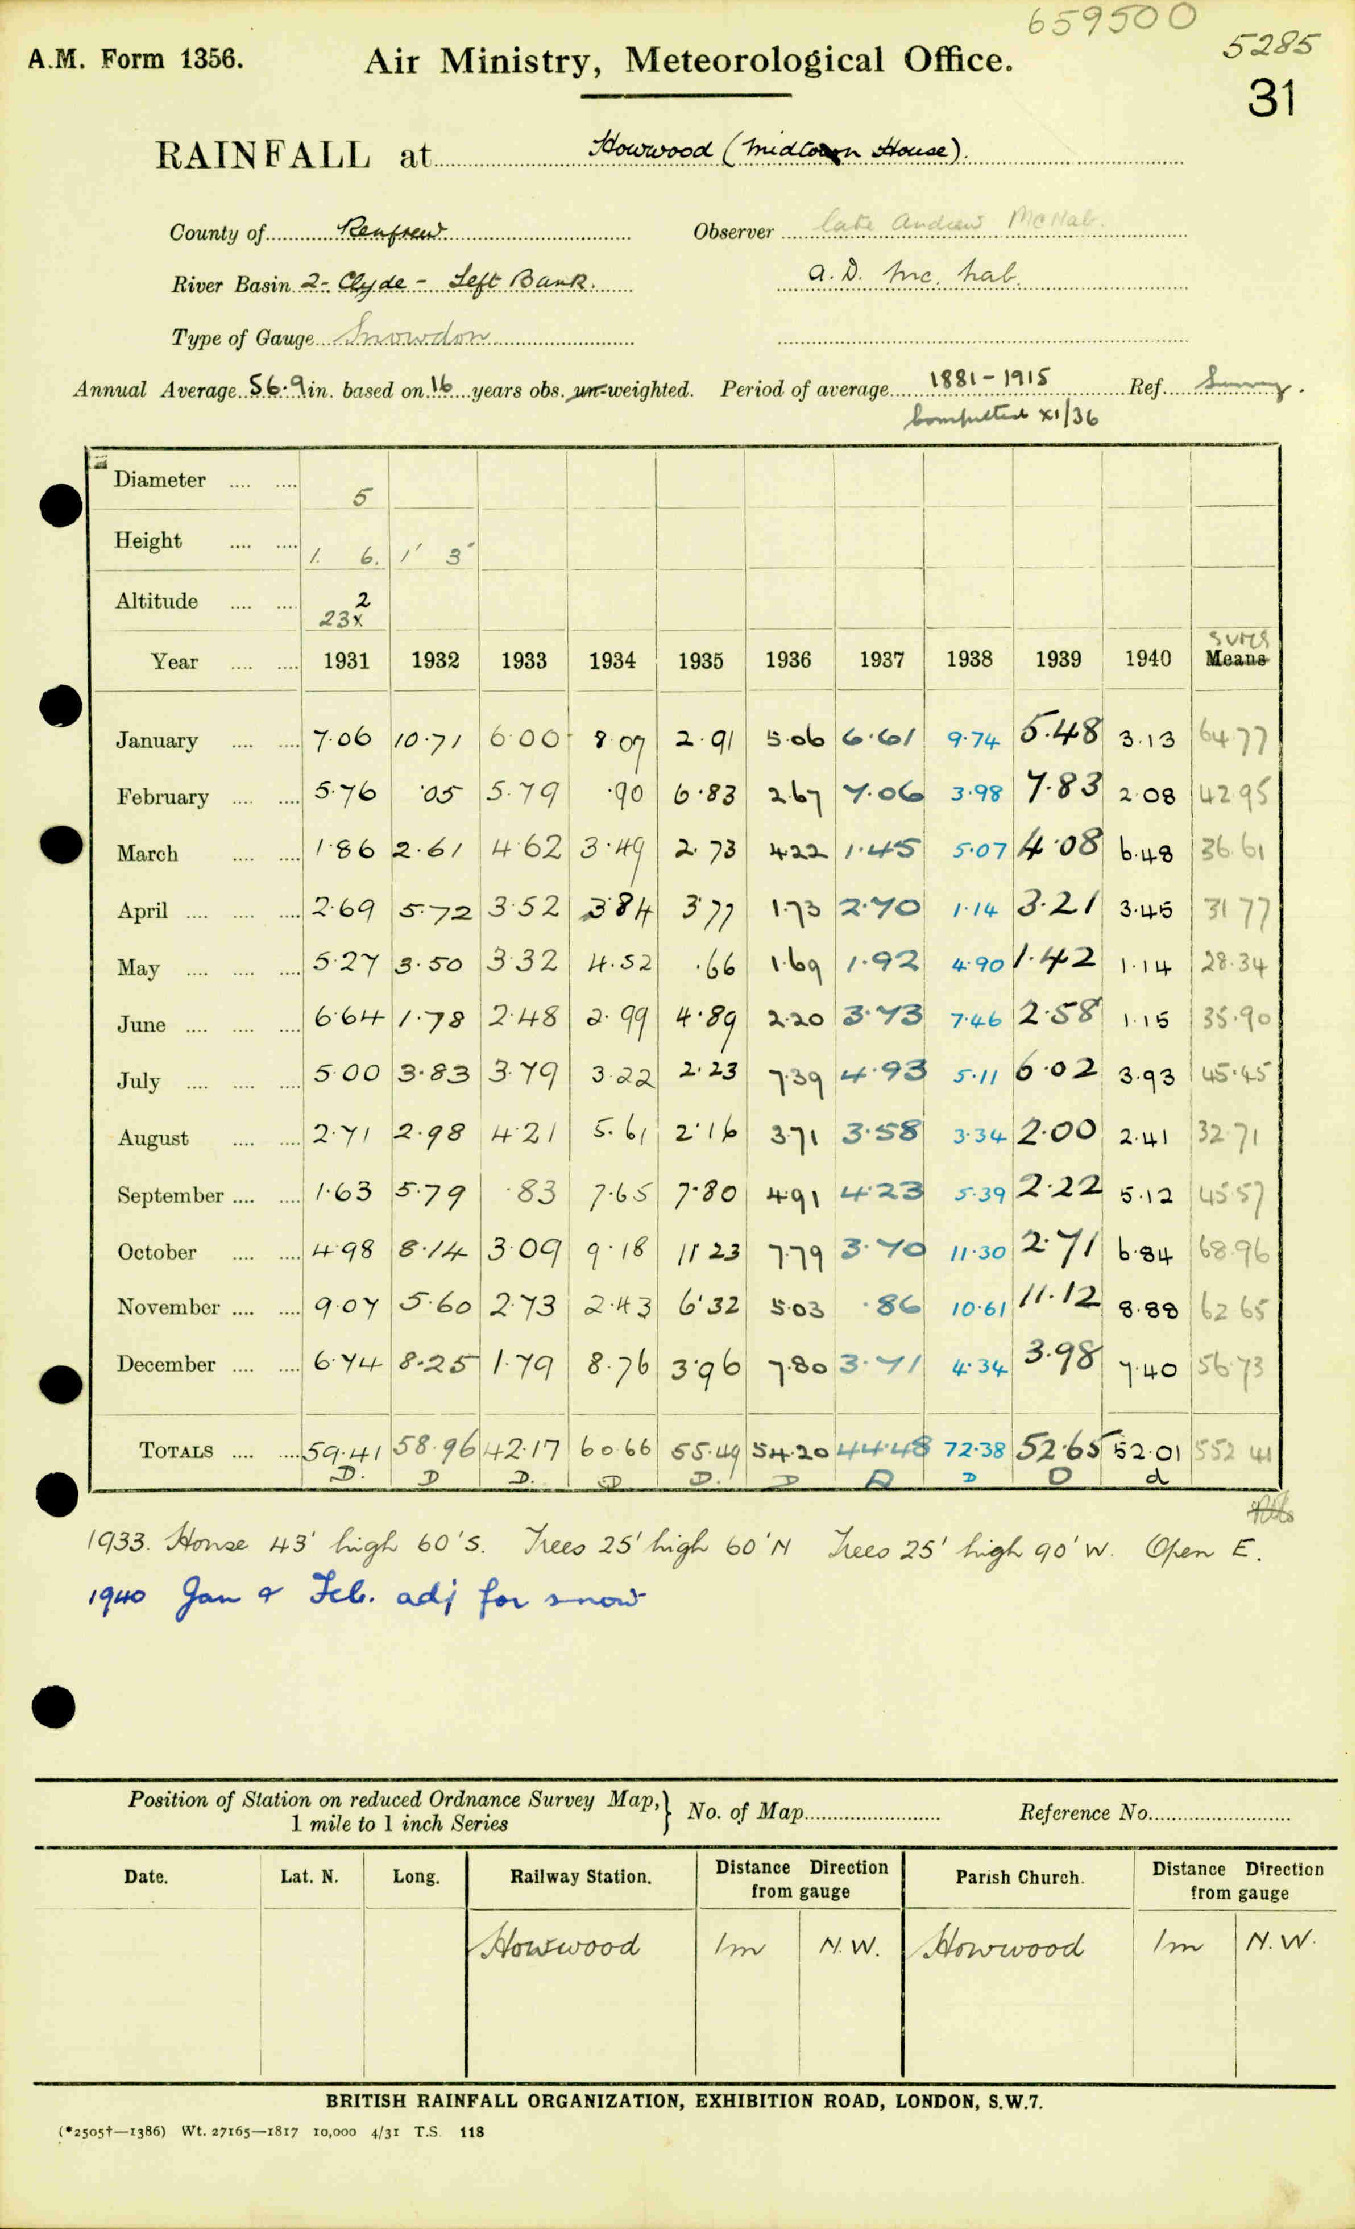 659500
5285
A.M. Form 1356. Air Ministry, Meteorological Office.
31
RAINFALL at Howwood (Midtown House).
County of Renfrew Observer late Andrew McNab.
River Basin 2- Clyde - Left Bank. A. D. Mc. Nab.
Type of Gauge Snowdon
Annual Average 56.9 in. based on 16 years obs. un-weighted. Period of average 1881-1915 Ref. Survey.
Computed XI/36
Diameter 5
Height 1. 6. 1' 3"
Altitude 23x 2
Sums
Year 1931 1932 1933 1934 1935 1936 1937 1938 1939 1940 Means
January 7.06 10.71 6.00 8.07 2.91 5.06 6.61 9.74 5.48 3.13 64.77
February 5.76 .05 5.79 .90 6.83 2.67 7.06 3.98 7.83 2.08 42.95
March 1.86 2.61 4.62 3.49 2.73 4.22 1.45 5.07 4.08 6.48 36.61
April 2.69 5.72 3.52 3.84 3.77 1.73 2.70 1.14 3.21 3.45 31.77
May 5.27 3.50 3.32 4.52 .66 1.69 1.92 4.90 1.42 1.14 28.34
June 6.64 1.78 2.48 2.99 4.89 2.20 3.73 7.46 2.58 1.15 35.90
July 5.00 3.83 3.79 3.22 2.23 7.39 4.93 5.11 6.02 3.93 45.45
August 2.71 2.98 4.21 5.61 2.16 3.71 3.58 3.34 2.00 2.41 32.71
September 1.63 5.79 .83 7.65 7.80 4.91 4.23 5.39 2.22 5.12 45.57
October 4.98 8.14 3.09 9.18 11.23 7.79 3.70 11.30 2.71 6.84 68.96
November 9.07 5.60 2.73 2.43 6.32 5.03 .86 10.61 11.12 8.88 62.65
December 6.74 8.25 1.79 8.76 3.96 7.80 3.71 4.34 3.98 7.40 56.73
TOTALS 59.41 58.96 42.17 60.66 55.49 54.20 44.48 72.38 52.65 52.01 552.41
D. D D. D D. D D D D d
1933. House 43' high 60'S. Trees 25' high 60'N Trees 25' high 90'W. Open E.
1940 Jan & Feb. adj for snow
Position of Station on reduced Ordnance Survey Map, 1 mile to 1 inch Series } No. of Map Reference No.
Date. Lat. N. Long. Railway Station. Distance Direction from gauge Parish Church. Distance Direction from gauge
Howwood 1m N.W. Howwood 1m N.W.
BRITISH RAINFALL ORGANIZATION, EXHIBITION ROAD, LONDON, S.W.7.
(*2505†—1386) Wt. 27165—1817 10,000 4/31 T.S. 118